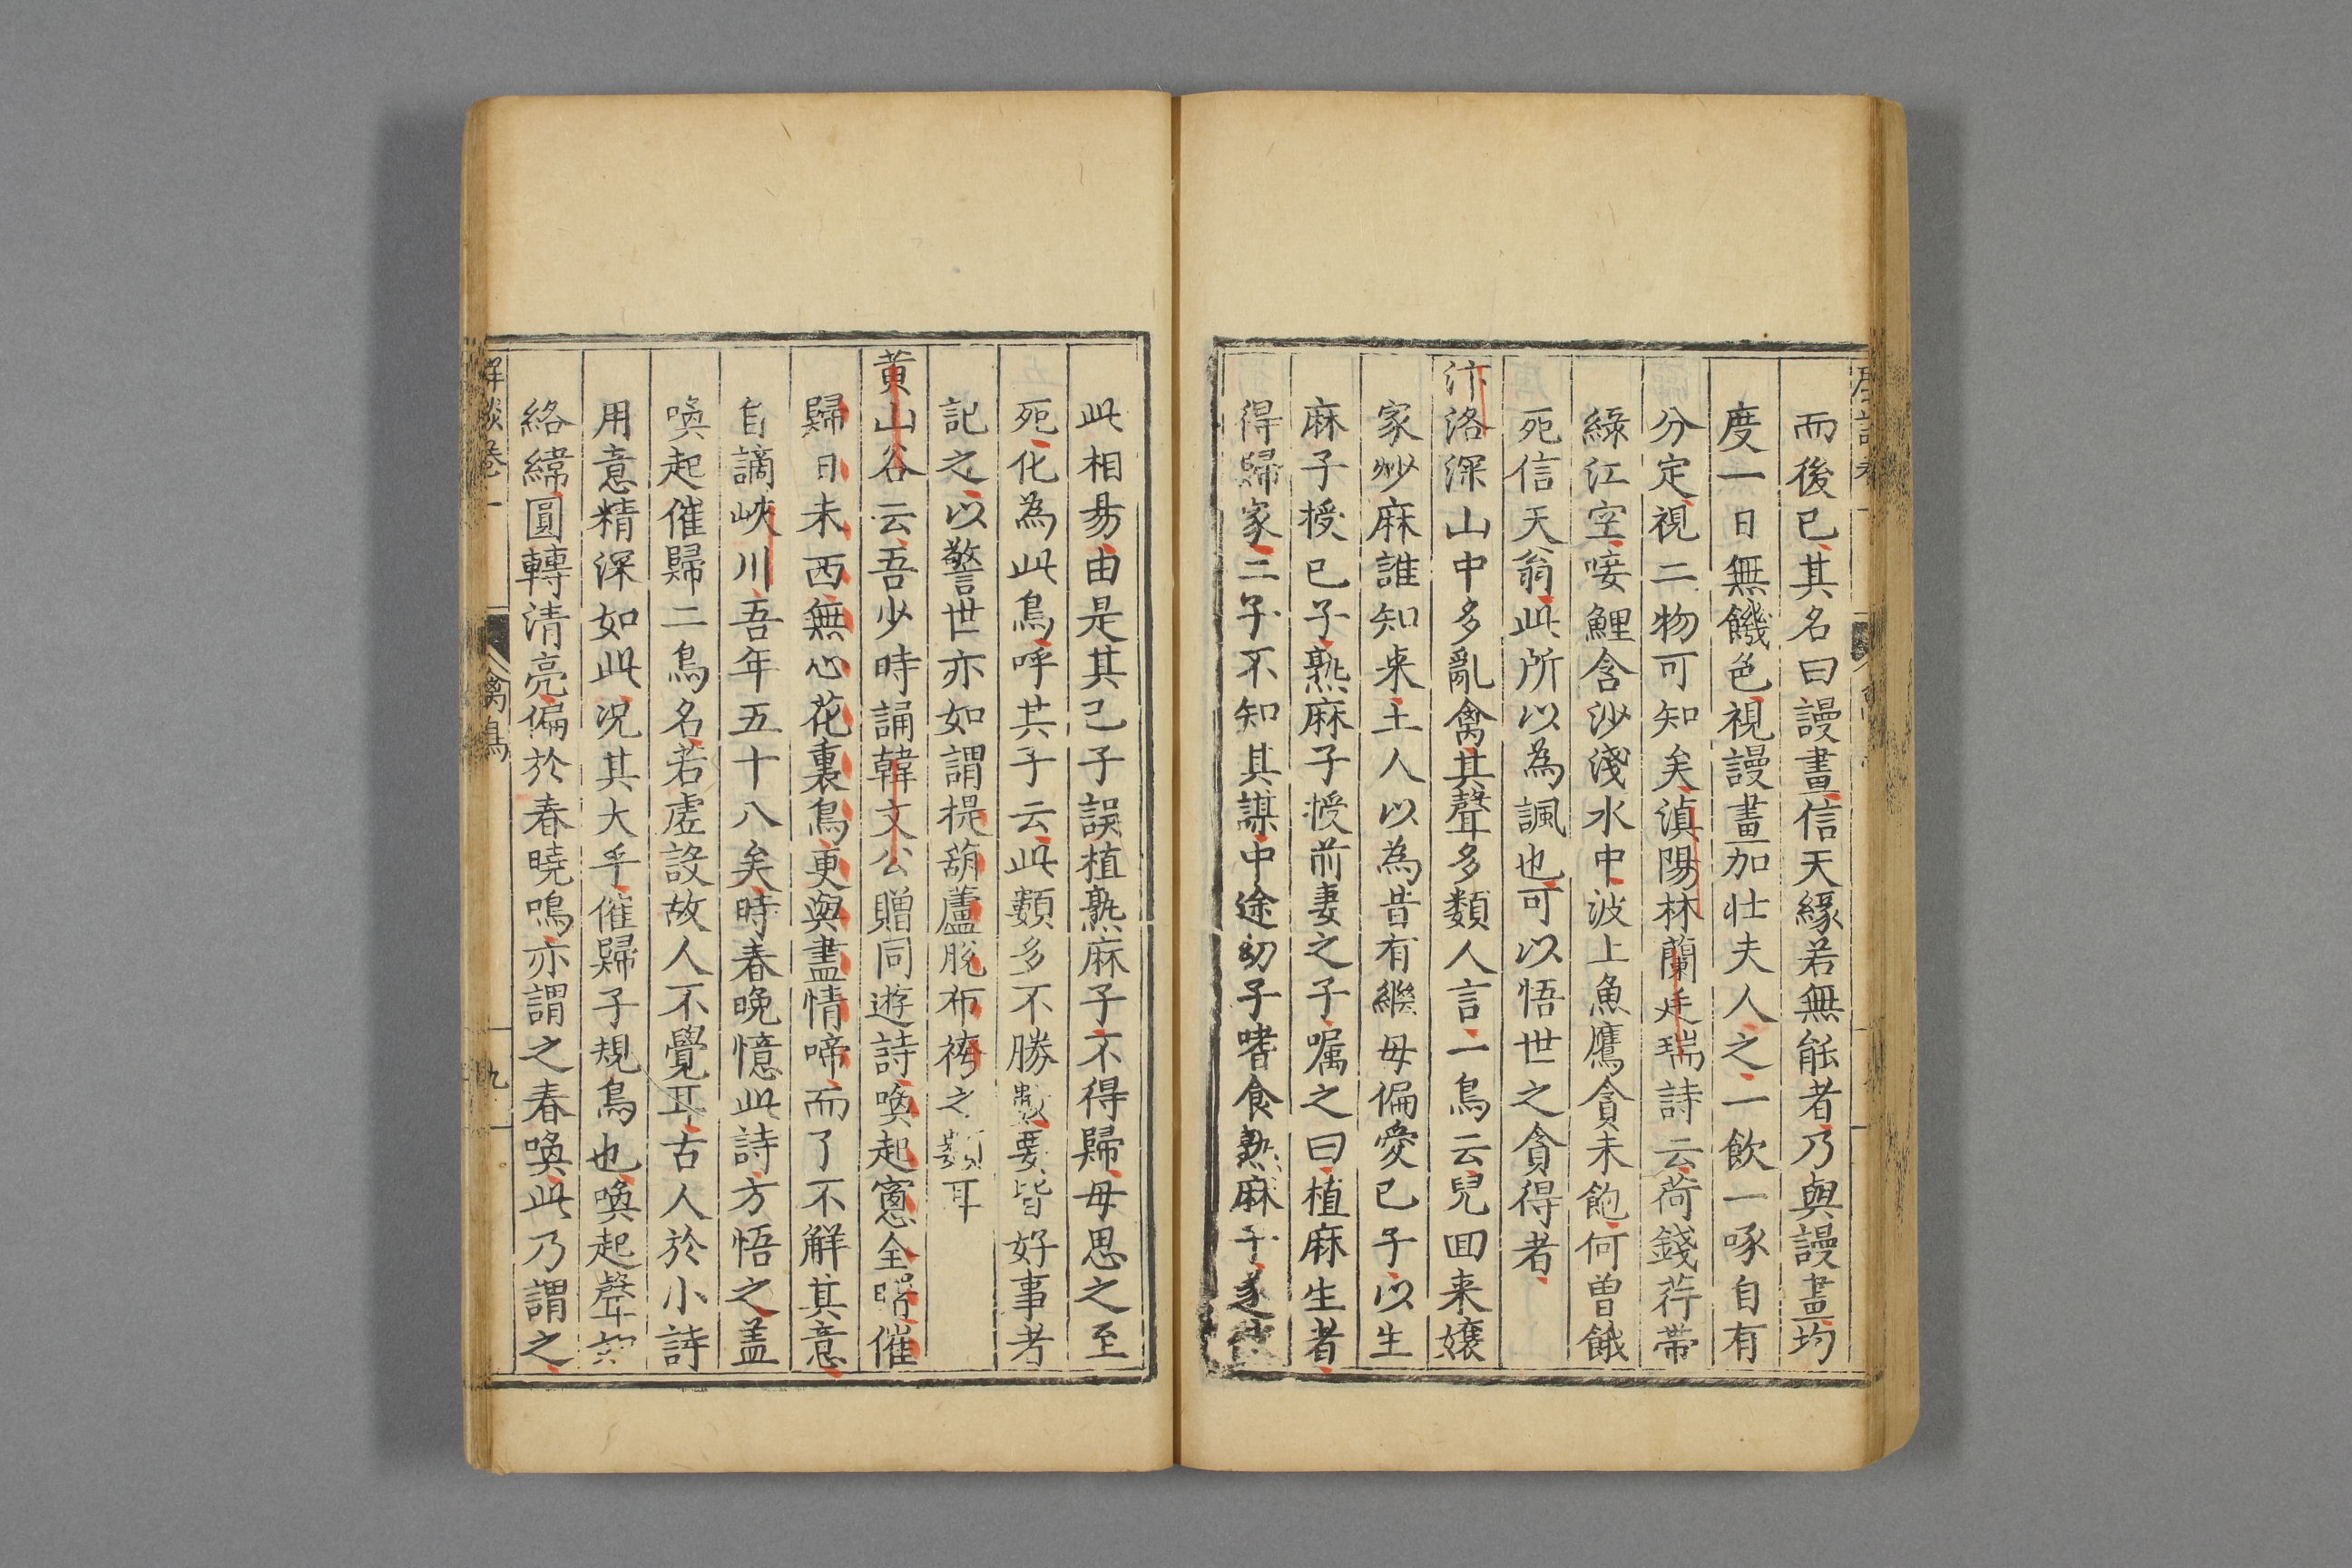 而後已其名曰謾畫信天緣若無能者乃與謾畫均
度一日無饑色視謾畫加壯夫人之一飲一啄自有
分定視二物可知矣滇陽林蘭廷瑞詩云荷錢荇帶
綠江空唼鯉含沙淺水中波上魚鷹貪未飽何曾餓
死信天翁此所以為諷也可以悟世之貪得者
汴洛深山中多亂禽其聲多類人言二鳥云兒回来孃
家炒麻誰知来土人以為昔有繼母偏愛已子以生
麻子授已子熟麻子授前妻之子囑之曰植麻生者
得歸家二子不知其謀中途幼子嗜食熟麻子遂
此相易由是其己子誤植熟麻子不得歸母思之至
死化為此鳥呼其子云此類多不勝數要皆好事者
記之以警世亦如謂提葫蘆脫布袴之類耳
黄山谷云吾少時誦韓文公贈同遊詩喚起窻全曙催
歸日未西無心花裏鳥更與盡情啼而了不解其意
自謫峽川吾年五十八矣時春晚憶此詩方悟之盖
喚起催歸二鳥名若虛設故人不覺耳古人於小詩
用意精深如此况其大乎催歸子規鳥也喚起聲如
絡緯圓轉清亮偏於春曉鳴亦謂之春喚此乃謂之
卷一
禽鳥
九